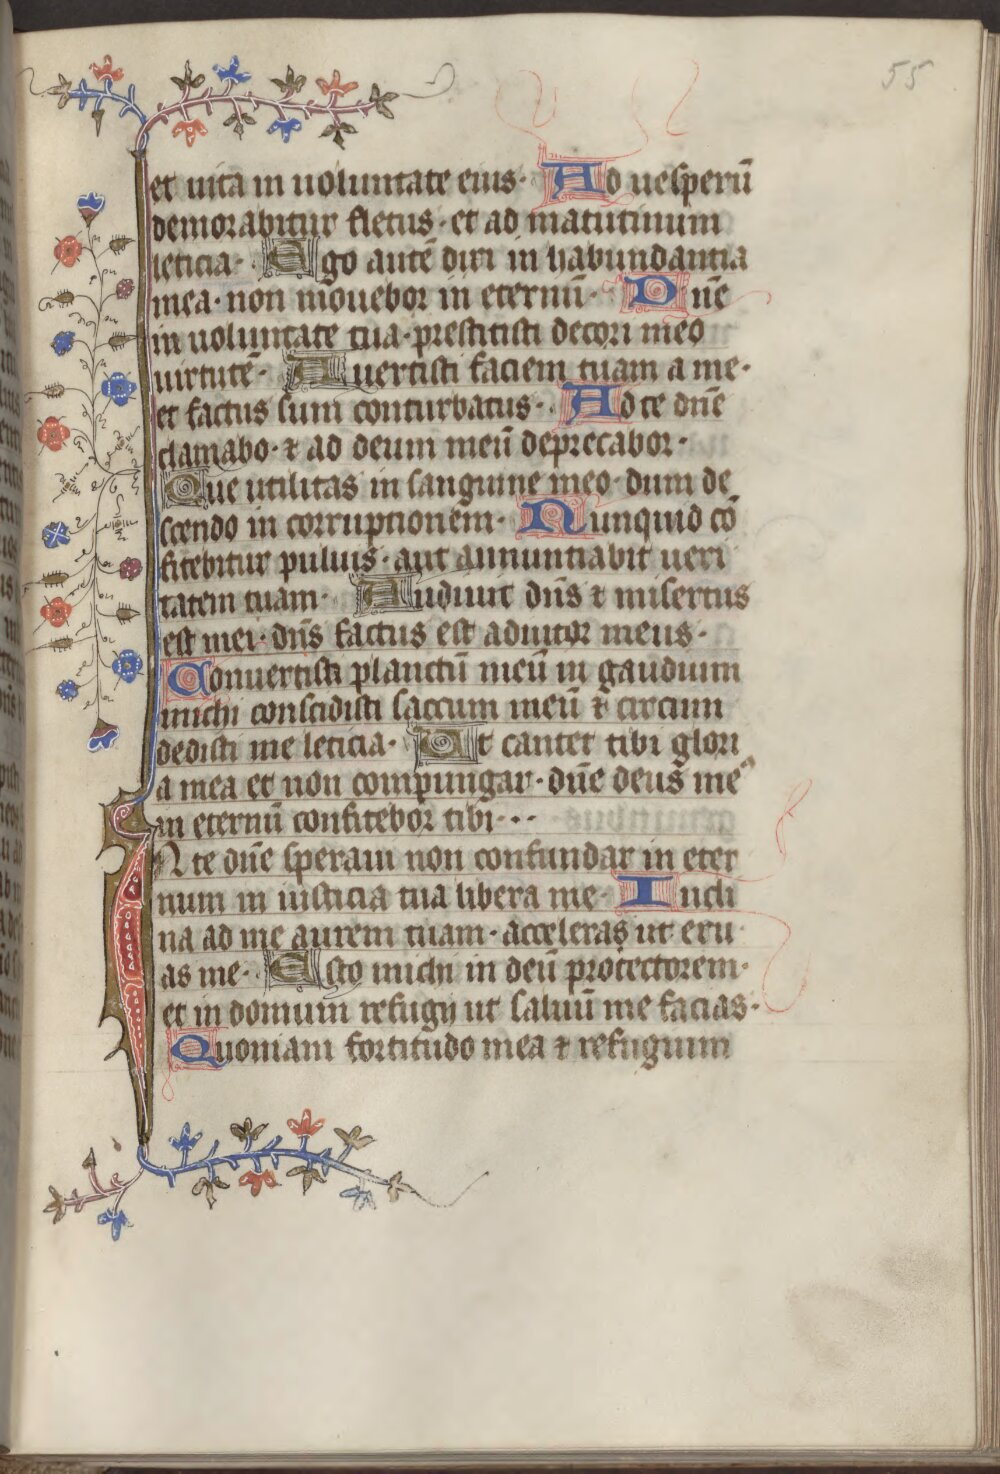 55
et uita in uoluntate eius· Ad uesperū
demorabitur fletus· et ad matutinum
leticia· Ego autē dixi in habundantia
mea· non mouebor in eternū· Dn̄e
in uoluntate tua· prestitisti decori meo
uirtutē· Auertisti faciem tuam a me·
et factus sum conturbatus· Ad te dn̄e
clamabo· ⁊ ad deum meū deprecabor·
Que utilitas in sanguine meo· dum de
scendo in corruptionem· Nunquid cō
fitebitur puluis· aut annuntiabit ueri
tatem tuam· Audiuit dn̄s ⁊ misertus
est mei· dn̄s factus est adiutor meus·
Conuertisti planctū meū in gaudium
michi conscidisti saccum meū ⁊ circum
dedisti me leticia· Ut cantet tibi glori
a mea et non compungar· dn̄e deus meꝰ
in eternū confitebor tibi···
IN te dn̄e speraui non confundar in eter
num in iusticia tua libera me· Incli
na ad me aurem tuam· acceleras ut eru
as me· Esto michi in deū protectorem·
et in domum refugij ut saluū me facias·
Quoniam fortitudo mea ⁊ refugium